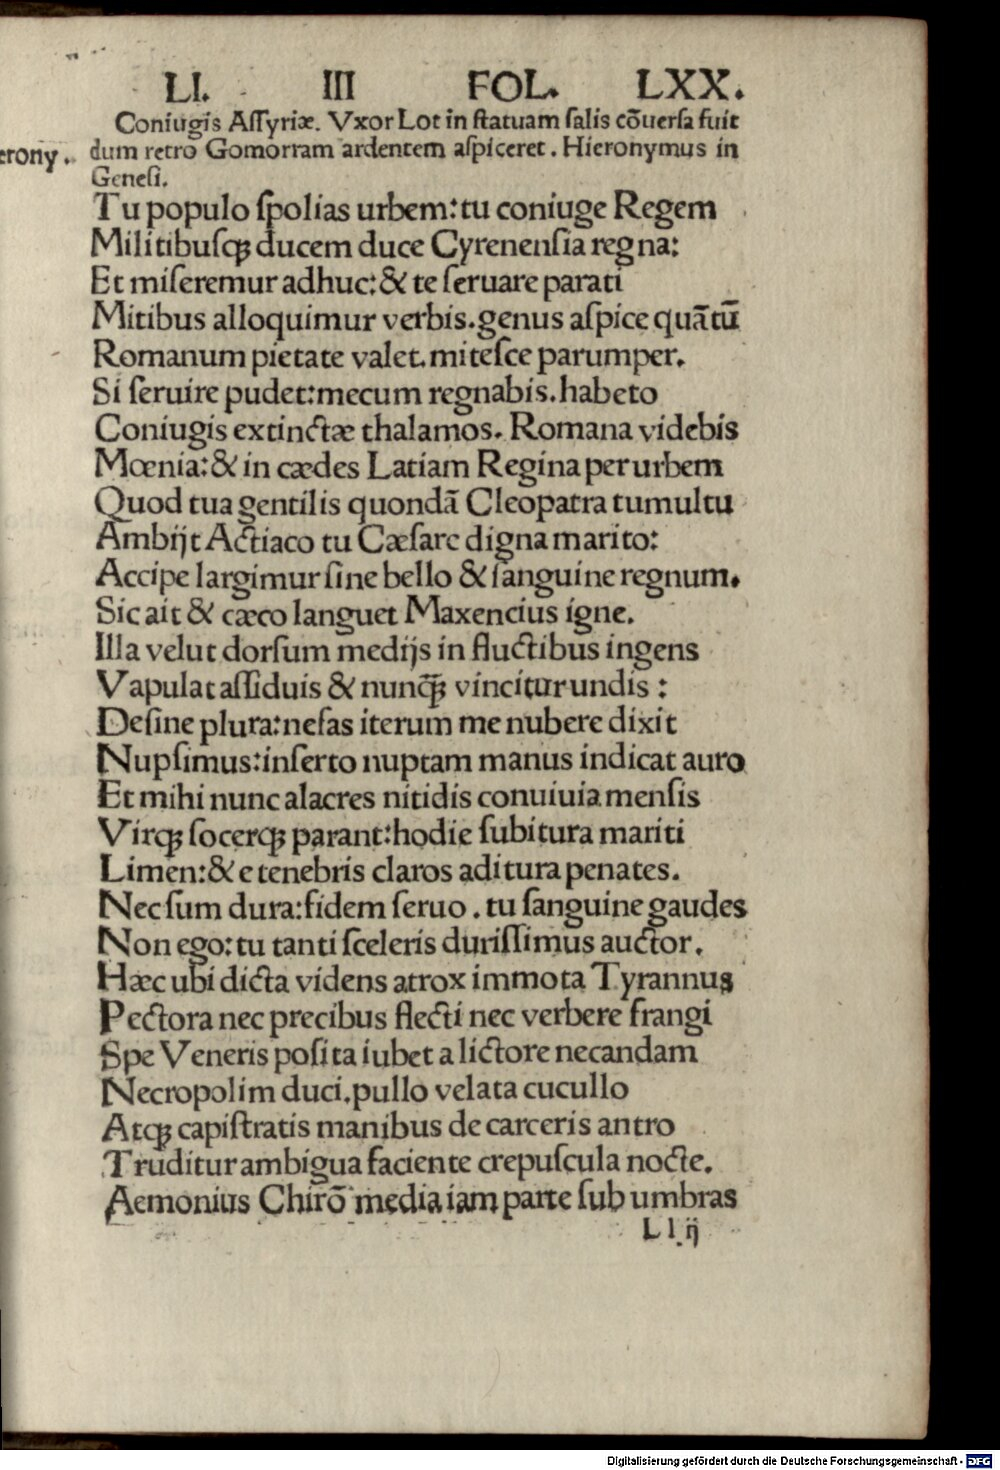 LI. III FOL. LXX.
Coniugis Aſſyriæ. Vxor Lot in ſtatuam ſalis cōuerſa fuit
erony. dum retro Gomorram ardentem aſpiceret. Hieronymus in
Geneſi.
Tu populo ſpolias urbem: tu coniuge Regem
Militibuſqꝫ ducem duce Cyrenenſia regna:
Et miſeremur adhuc: & te ſeruare parati
Mitibus alloquimur verbis. genus aſpice quātū
Romanum pietate valet. miteſce parumper.
Si ſeruire pudet: mecum regnabis. habeto
Coniugis extinctæ thalamos. Romana videbis
Mœnia: & in cædes Latiam Regina per urbem
Quod tua gentilis quondā Cleopatra tumultu
Ambijt Actiaco tu Cæſare digna marito:
Accipe largimur ſine bello & ſanguine regnum.
Sic ait & cæco languet Maxencius igne.
Illa velut dorſum medijs in fluctibus ingens
Vapulat aſſiduis & nunq̄ꝫ vincitur undis:
Deſine plura: nefas iterum me nubere dixit
Nupſimus: inſerto nuptam manus indicat auro
Et mihi nunc alacres nitidis conuiuia menſis
Virqꝫ ſocerqꝫ parant: hodie ſubitura mariti
Limen: & e tenebris claros aditura penates.
Nec ſum dura: fidem ſeruo. tu ſanguine gaudes
Non ego: tu tanti ſceleris duriſſimus auctor.
Hæc ubi dicta videns atrox immota Tyrannus
Pectora nec precibus flecti nec verbere frangi
Spe Veneris poſita iubet a lictore necandam
Necropolim duci. pullo velata cucullo
Atqꝫ capiſtratis manibus de carceris antro
Truditur ambigua faciente crepuſcula nocte.
Aemonius Chirō media iam parte ſub umbras
Ll ij
Digitalisierung gefördert durch die Deutsche Forschungsgemeinschaft - DFG